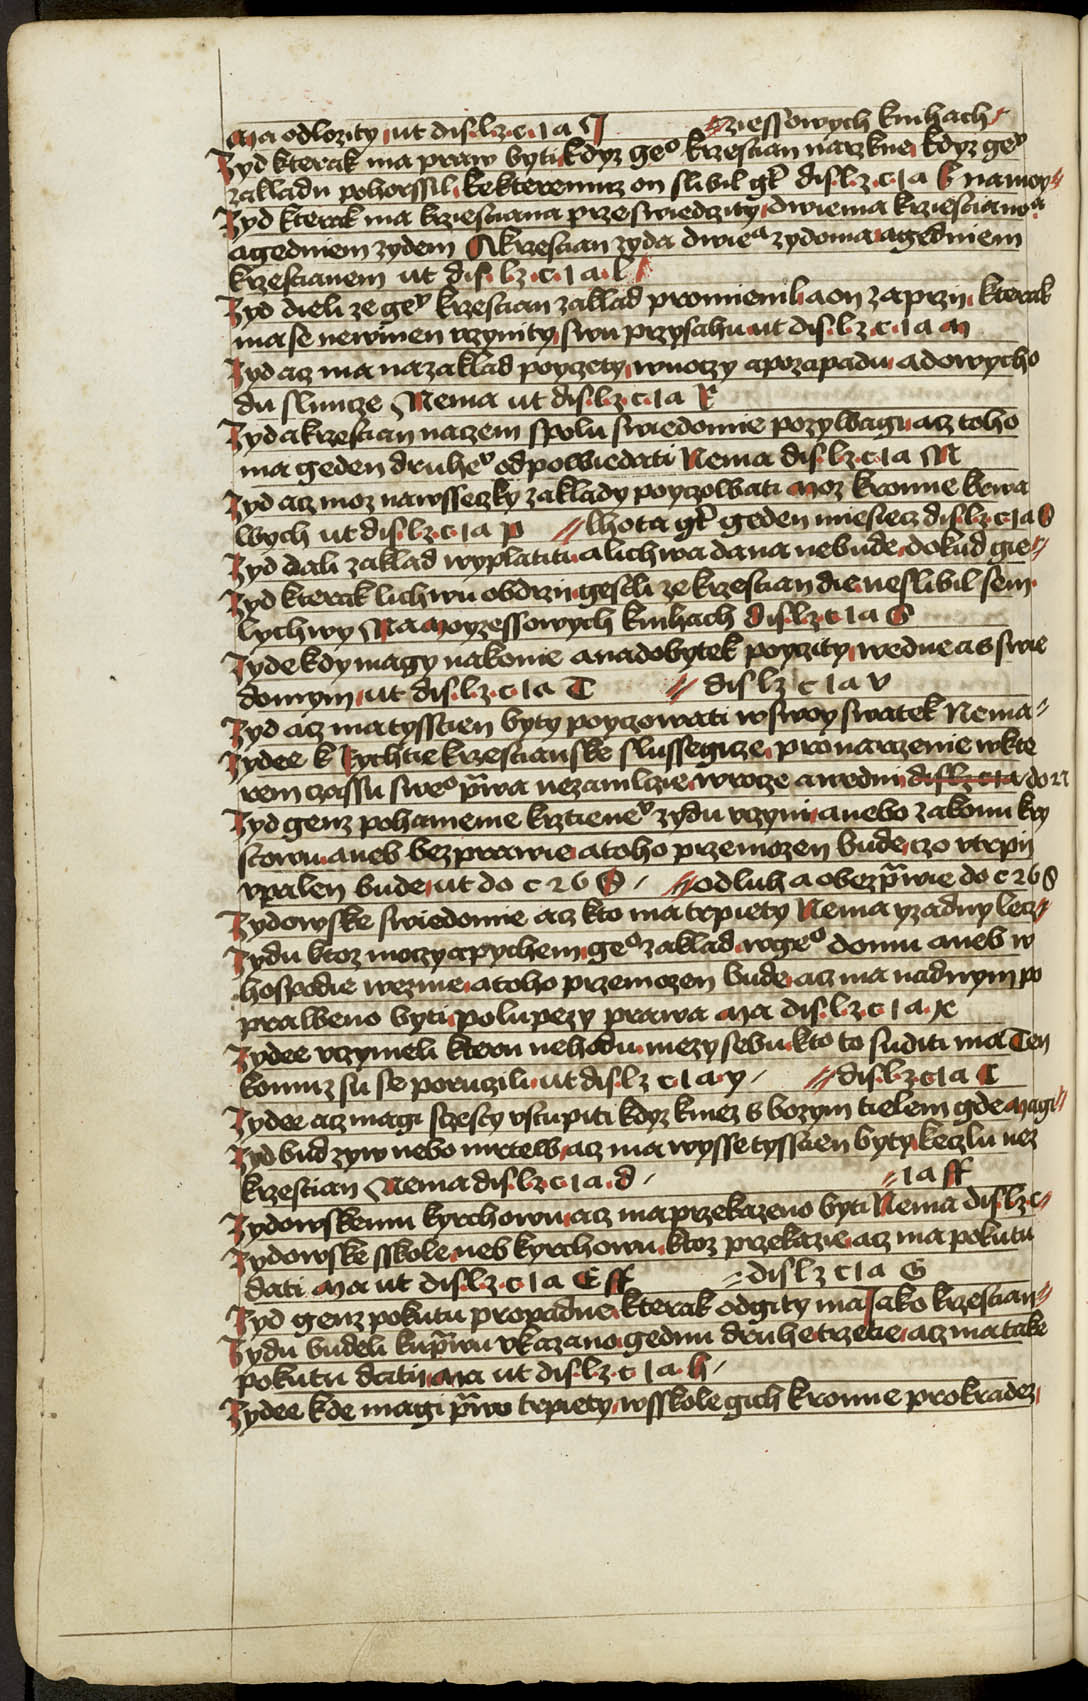 Ma odlozity ut dis. lz. c. 1 a ziessowych knihach
Zyd kterak ma praw byti kdyz geo krzestian narzkne kdyz gev
zakladu pohorssil kekteremuz on slibil gt dis. lz. c. 1 a k na moy
Zyd kterak ma krziestiana przeswiedczity dwiema krziestianoa
a gedniem zydem A krzestian zyda dwiea zydoma a gedniem
krzestianem ut dis. lz. c. 1 a. l
Zyd dieli ze gev krzestian zaklad promienil a on zaprzi kterak
ma se newinen vczynity swu przysahu ut dis. lz. c. 1 a m
Zyd acz ma na zaklad poyczety w noczy a po zapadu a do wycho
du sluncze Nema ut dis. lz. c. 1 a R
Zyd a krzestian naczem spolu swiedomie pozywagi acz toho
ma geden druhev odpowiedati Nema dis. lz. c. 1 a M
Zyd acz moz na wsseczky zaklady poyczowati Moz kromie krwa
wych ut dis. lz. c. 1 a p lhota gt geden miesiecz dis. lz. c. 1 a
Zyd dali zaklad wyplatiti a lichwa dana nebude dokud gie
Zyd kterak lichwu obdrzi gestli ze krzestian die neslibil sem
lychwy Na moyzessowych knihach dis. lz. c. 1 a S
Zyde kdy magy na konie a na dobytek poyczity we dne a s swie
domym ut dis. lz. c. 1 a T dis lz c 1 a v
Zyd acz ma tysstien byty poyczowati w swoy swatek Nema
Zydee k kychtie krzestianske slussegicze pro narzenie w kte
rem czassu sweo prawa nezamlcie w rocze a we dni dis lz c 1 a do 12
Zyd genz pohanenie krztienev zydu vczyni anebo zakonu kry
stowu aneb bezprawie a toho przemozen bude czo vtrpij
vpalen bude ut do c 26 S odluh a o bezprawie do c 26 S
Zydowske swiedomie acz kto ma trpiety Nema y zadny lecz
Zydu ktoz moczy a pychem geo zaklad w geo domu aneb w
hospodie wezme a toho przemozen bude acz ma nad nym po
praweno byti polupezy prawa Ma dis. lz. c 1 a. x
Zydee vczymeli kteru nehodu mezy sebu kto to suditi ma Ten
komuz su se poruczili ut dis. lz c. 1 a. y dis. lz. c. 1 a
Zydee acz magi sczesty vstupiti kdyz kniez s bozym tielem gde Magi
Zyd bud zyw nebo mrtew acz ma wysse tysstien byty k czlu nez
krzestian Nema dis. lz. c. 1 a. d 1 a ff
Zydowskemu kyrchowu acz ma przekazeno byti Nema dis. lz. c
Zydowske sskole neb kyrchowu ktoz przekazie acz ma pokutu
dati Ma ut dis. lz. c. 1 a ff dis lz c 1 a G
Zyd genz pokutu propadne kterak odgity ma Jako krzestian
Zydu budeli kuprawu vkazano gednu druhe trzetie acz ma take
pokutu dati Ma ut dis. lz. c. 1 a. h
Zydee kde magi prawo trpiety w sskole gich kromie pro kradez